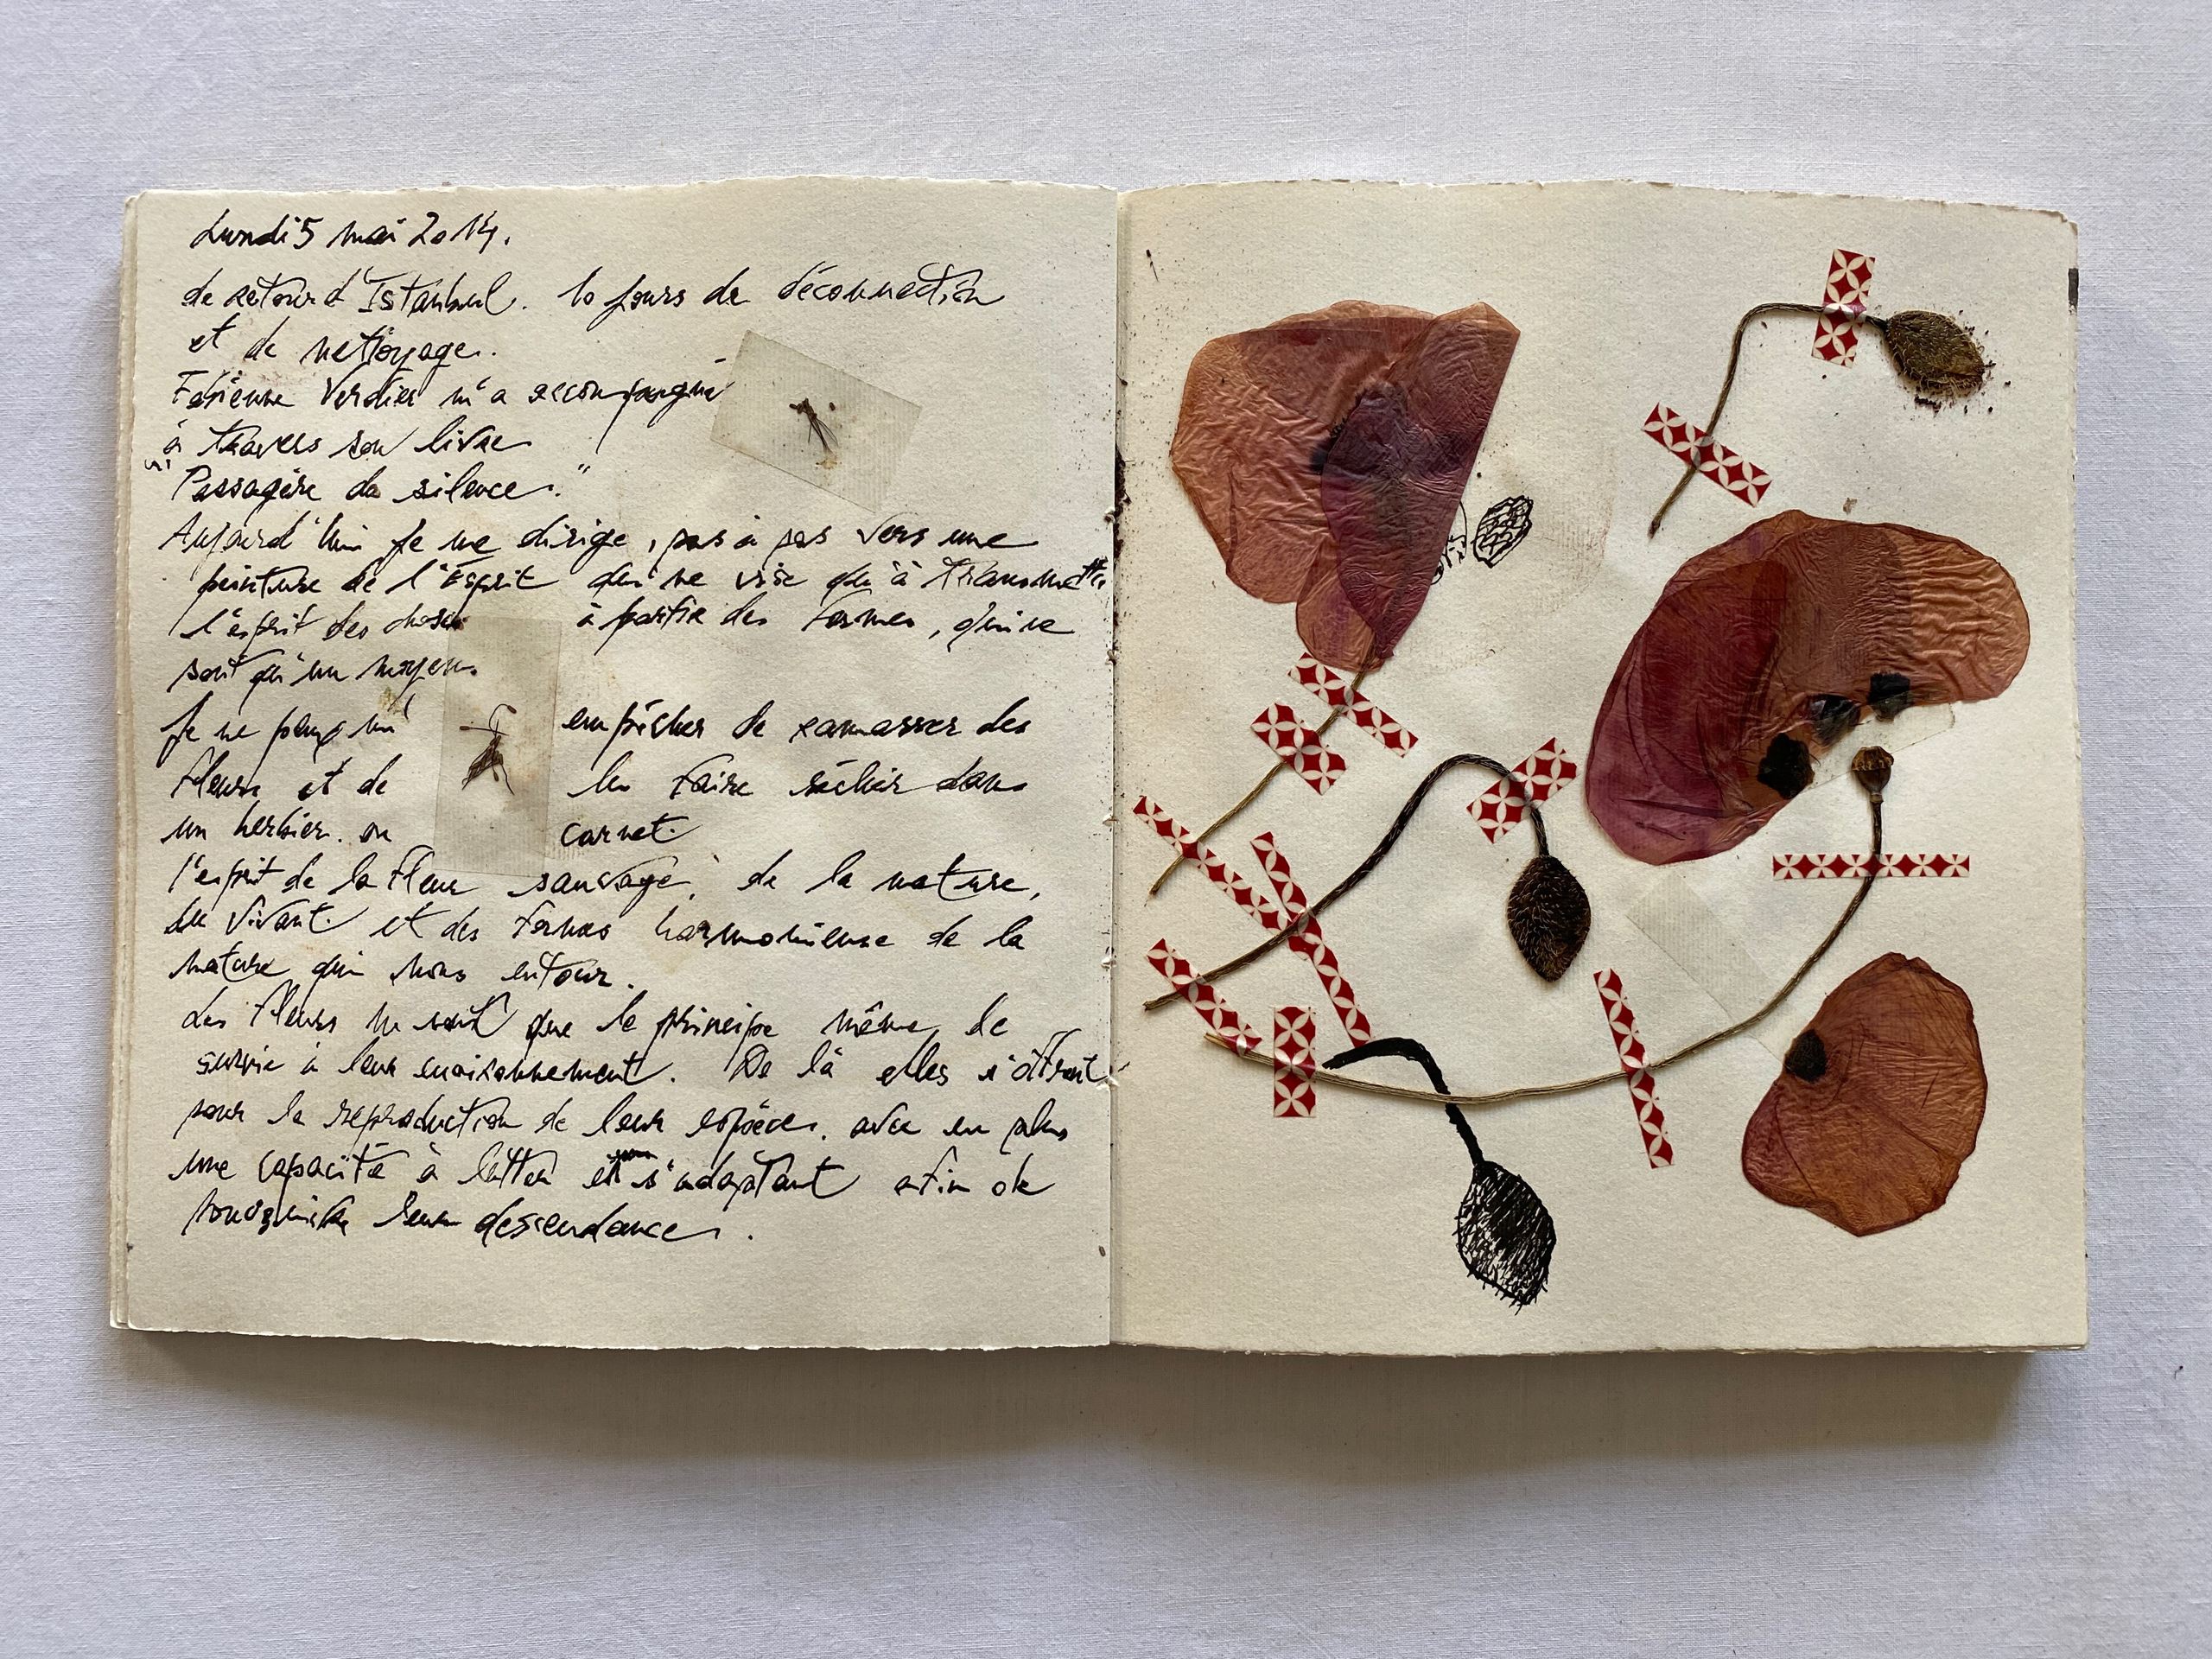 Lundi 5 mai 2014.
de retour d'Istanbul. 10 jours de déconnection
et de nettoyage.
Fabienne Verdier m'a accompagné
à travers son livre
"Passagère du silence."
Aujourd'hui je me dirige, pas à pas vers une
peinture de l'Esprit qui ne vise qu'à transmettre
l'esprit des choses à partir des formes, qui ne
sont qu'un moyen.
Je ne peux m' empêcher de ramasser des
fleurs et de les faire sécher dans
un herbier ou carnet.
l'esprit de la fleur sauvage, de la nature,
du vivant et des formes harmonieuse de la
nature qui nous entour.
Les fleurs ne sont que le principe même de
survie à leur environnement. De là elles s'offrent
pour la reproduction de leur espèce. avec en plus
une capacité à lutter et s'adaptant afin de
leur descendance.